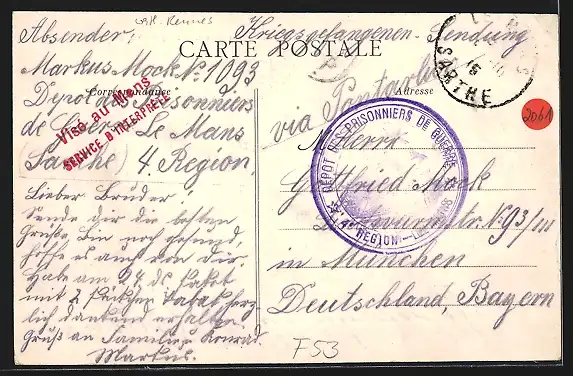 Kriegsgefangenen-Sendung
CARTE POSTALE
Correspondance
Adresse
Absender:
Markus Mock No. 1093
Depot des Prisonniers
de Guerre Le Mans
(Sarthe) 4. Region.
Visé au Mans
SERVICE D'INTERPRÈTE
Lieber Bruder!
Sende dir die besten
Grüße bin noch gesund,
hoffe es auch von dir.
Habe am 24 ds Paket
mit 2 Päckchen Tabak herz-
lich dankend erhalten.
Gruß an Familie u. Konrad.
Markus.
via Pontarlier
SARTHE
15
DEPOT DES PRISONNIERS DE GUERRE
4e REGION
2061
Herrn
Gottfried Mock
No. 93/III
in München
Deutschland, Bayern
F53